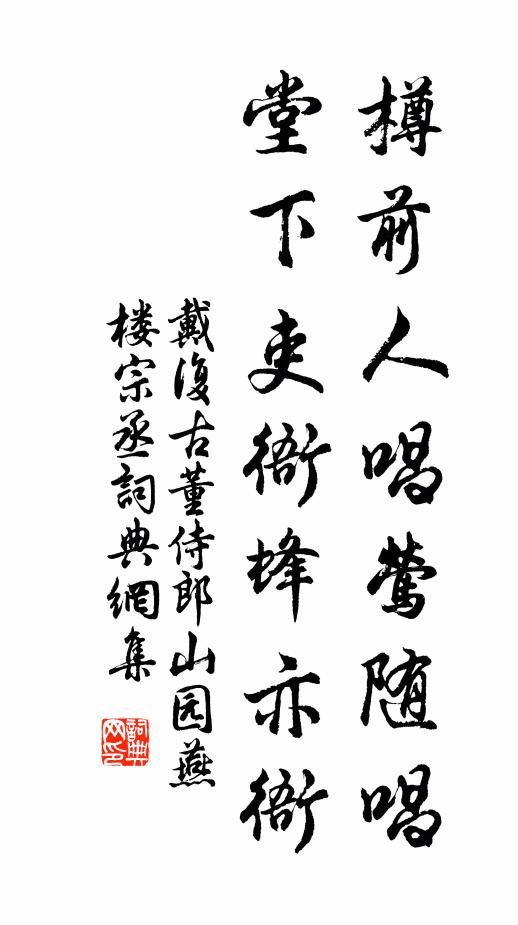 樽前人唱莺随唱
堂下吏衙蜂亦衙
戴復古董侍郎山园燕
楼宗丞詞典網集
詞典网印